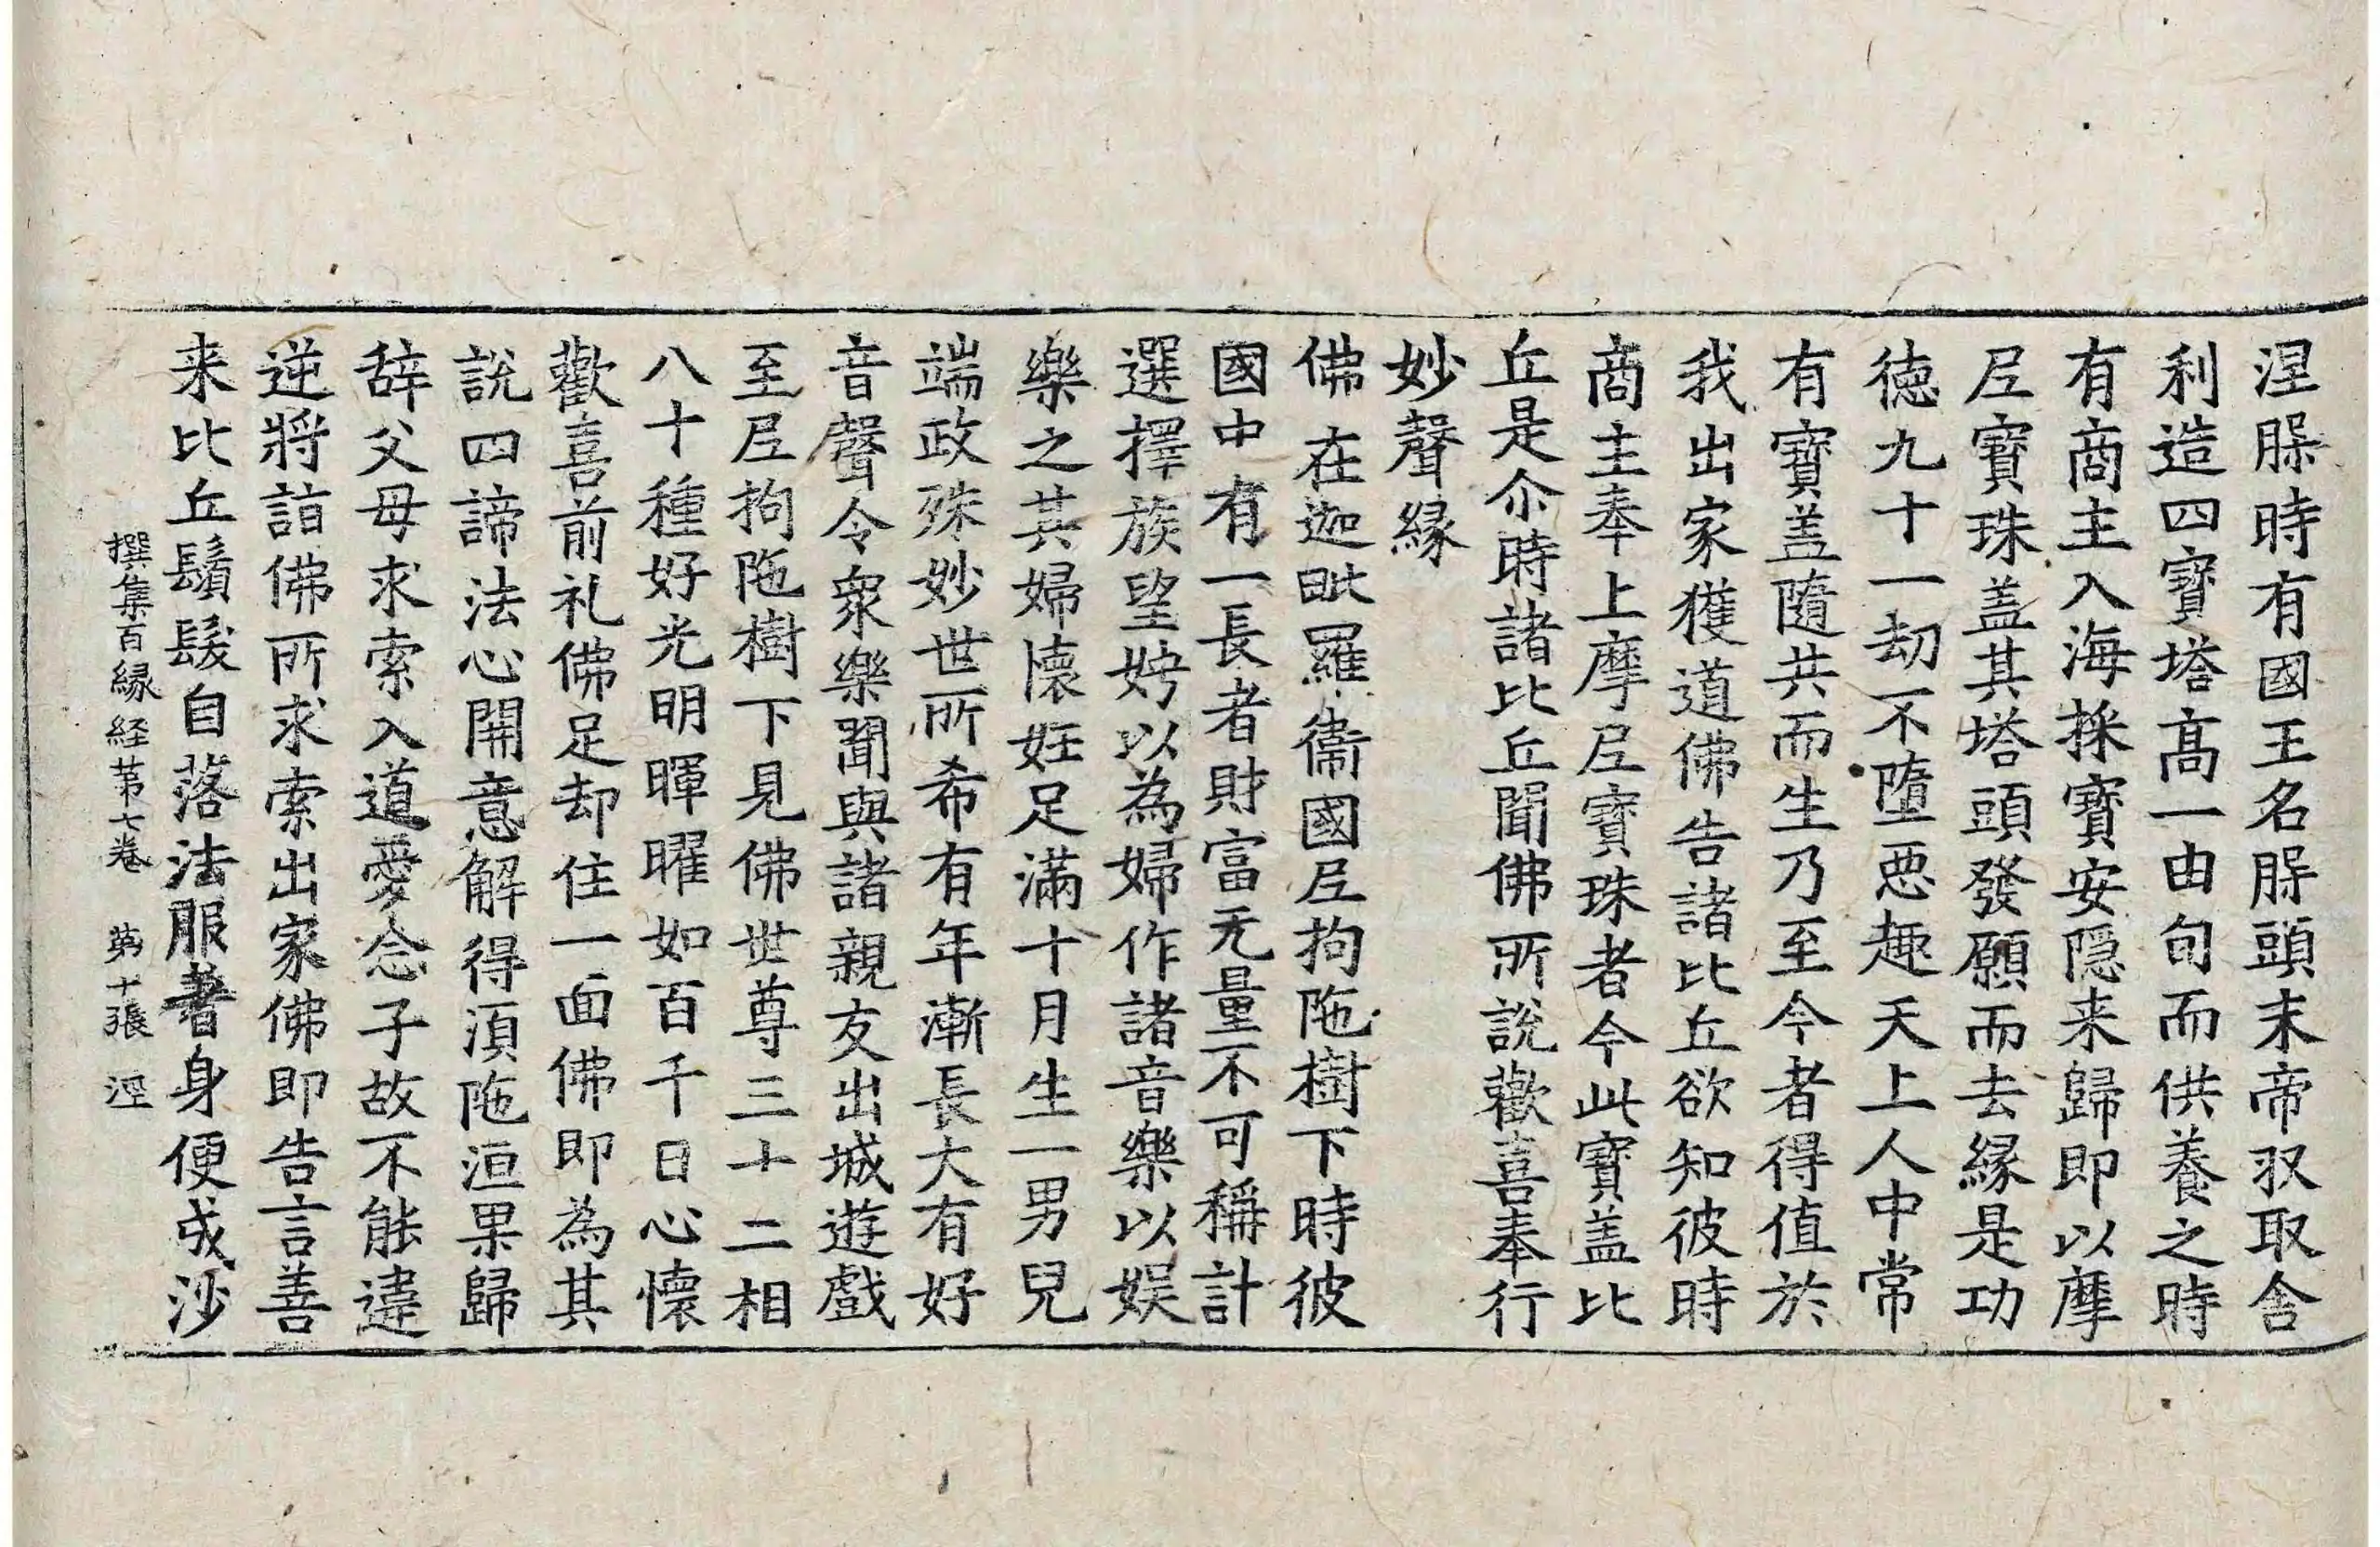 涅槃時有國王名槃頭末帝収取舎
利造四寶塔髙一由旬而供養之時
有商主入海採寶安隠来歸即以摩
尼寶珠盖其塔頭發願而去縁是功
徳九十一劫不墮惡趣天上人中常
有寶盖隨共而生乃至今者得值於
我出家獲道佛告諸比丘欲知彼時
商主奉上摩尼寶珠者今此寶盖比
丘是尒時諸比丘聞佛所說歡喜奉行
妙聲縁
佛在迦毗羅衛國尼拘陁樹下時彼
國中有一長者財富无量不可稱計
選擇族望娉以為婦作諸音樂以娱
樂之其婦懷妊足滿十月生一男兒
端政殊妙世所希有年漸長大有好
音聲令衆樂聞與諸親友出城遊戲
至尼拘陁樹下見佛世尊三十二相
八十種好光明暉曜如百千日心懷
歡喜前礼佛足却住一面佛即為其
說四諦法心開意解得湏陁洹果歸
辞父母求索入道愛念子故不能違
逆將詣佛所求索出家佛即告言善
来比丘鬚髮自落法服著身便成沙
撰集百縁経苐七卷 苐十張 涇